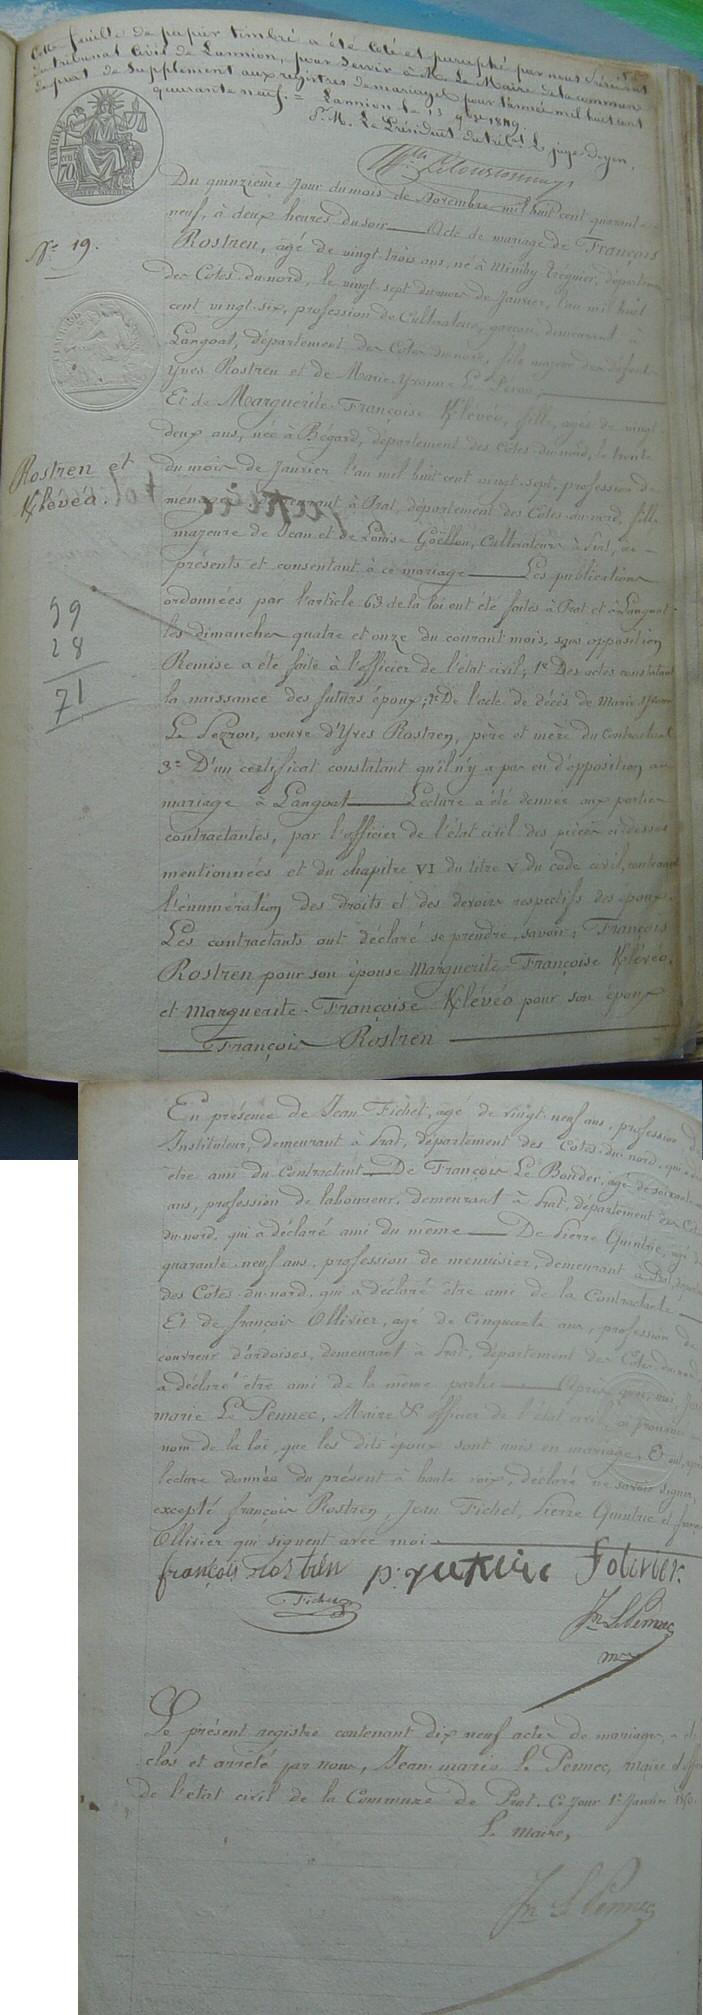 Cette feuille de papier timbré a été coté et paraphé par nous Président
du tribunal civil de Lannion, pour servir à Mr. Le Maire de la commune
de prat de supplément aux registres de mariages pour l'année mil huit cent
quarante neuf. = Lannion le 13 9bre 1849.
P. M. Le Président du tribal Le juge Doyen,
TIMBRE
70
Du quinzième jour du mois de Novembre mil huit cent quarante-
neuf, à deux heures du soir — Acte de mariage de François
No 19.
Rostren, agé de vingt-trois ans, né à Minihy Tréguier, départem
des Cotes-du-nord, le vingt-sept du mois de Janvier, l'an mil huit
cent vingt-six, profession de Cultivateur, garçon, demeurant à
Langoat, département des Cotes-du-nord, fils majeur des défunts
Yves Rostren et de Marie-Yvonne Le Perron,
Et de Marguerite-Françoise Klévéo, fille, agée de vingt-
deux ans, née à Bégard, département des Cotes-du-nord, le trente
Rostren et
Klévéo.
du mois de Janvier l'an mil huit cent vingt-sept, profession de
ménagère demeurant à Prat, département des Cotes-du-nord, fille
majeure de Jean et de Louise Goëllou, Cultivateurs à Prat, ce-
présents et consentant à ce mariage — Les publications
ordonnées par l'article 63 de la loi ont été faites à Prat et à Langoat
59
28
71
les dimanches quatre et onze du courant mois, sans opposition
Remise a été faite à l'officier de l'état civil; 1o Des actes constatant
la naissance des futurs époux; 2o De l'acte de décès de Marie Yvonne
Le Perron, veuve d'Yves Rostren, père et mère du Contractant
3o D'un certificat constatant qu'il n'y a pas eu d'opposition au
mariage à Langoat — Lecture a été donnée aux parties
contractantes, par l'officier de l'état civil des pièces ci-dessus
mentionnées et du chapitre VI du titre V du code civil, contenant
l'énumération des droits et des devoirs respectifs des époux.
Les contractants ont déclaré se prendre, savoir: François
Rostren pour son épouse Marguerite-Françoise Klévéo,
et Marguerite-Françoise Klévéo pour son époux
François Rostren
En présence de Jean Fichet, agé de vingt-neuf ans, profession d
Instituteur, demeurant à Prat, département des Cotes-du-nord, qui a
être ami du Contractant — De François Le Bonder, agé de soixante
ans, profession de laboureur, demeurant à Prat, département des Cotes
du-nord, qui a déclaré ami du même — De Pierre Quintric, agé de
quarante-neuf ans, profession de menuisier, demeurant à Prat, départ
des Côtes-du-nord, qui a déclaré être ami de la Contractante —
Et de françois Ollivier, agé de Cinquante ans, profession de
couvreur d'ardoises, demeurant à Prat, département des Cotes-du-nord
a déclaré être ami de la même partie — Après quoi, moi, Jean
marie Le Pennec, Maire & officier de l'état civil, ai prononcé au
nom de la loi, que les dits époux sont unis en mariage, & ont, après
lecture donnée du présent à haute voix, déclaré ne savoir signer,
excepté françois Rostren, Jean Fichet, Pierre Quintric et franç
Ollivier qui signent avec moi
françois rostren p: quintric f olivier.
Fichet
Jn Le Pennec
mre
Le présent registre contenant dix-neuf actes de mariages, a été
clos et arrêté par nous, Jean-marie le Pennec, maire & offic
de l'état civil de la Commune de Prat. Ce jour 1er Janvier 1850.
Le maire,
Jn Le Pennec